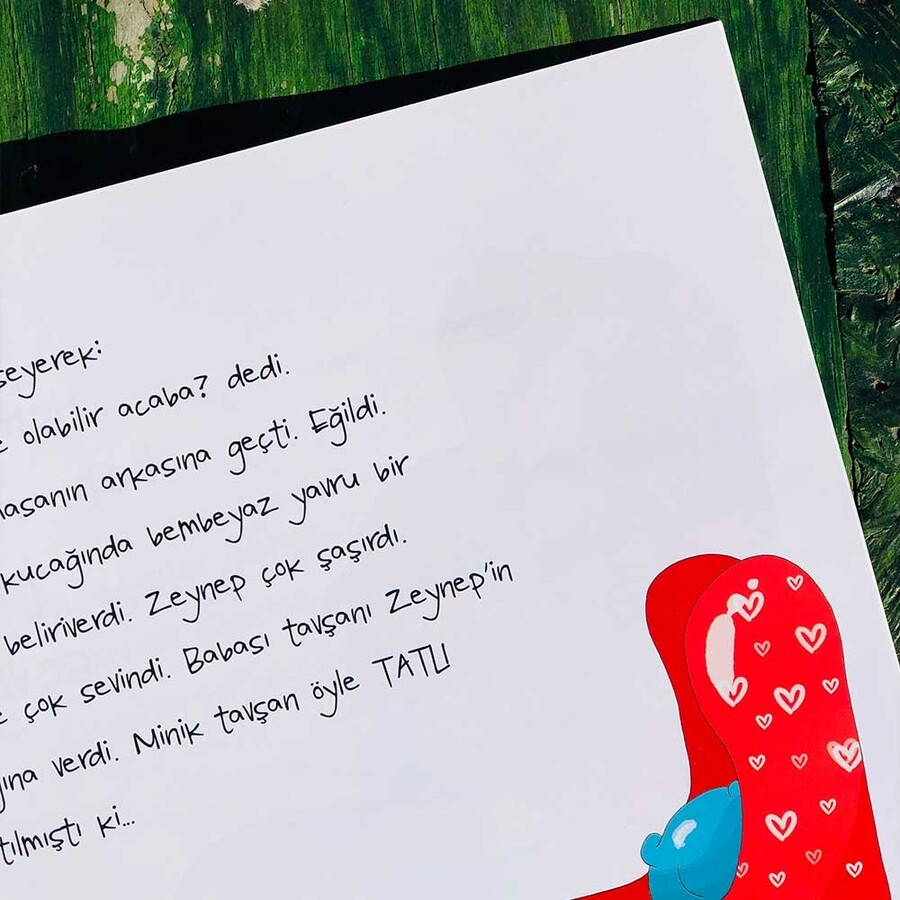 seyerek:
olabilir acaba? dedi.
masanın arkasına geçti. Eğildi.
kucağında bembeyaz yavru bir
beliriverdi. Zeynep çok şaşırdı.
çok sevindi. Babası tavşanı Zeynep'in
verdi. Minik tavşan öyle TATLI
tılmıştı ki...